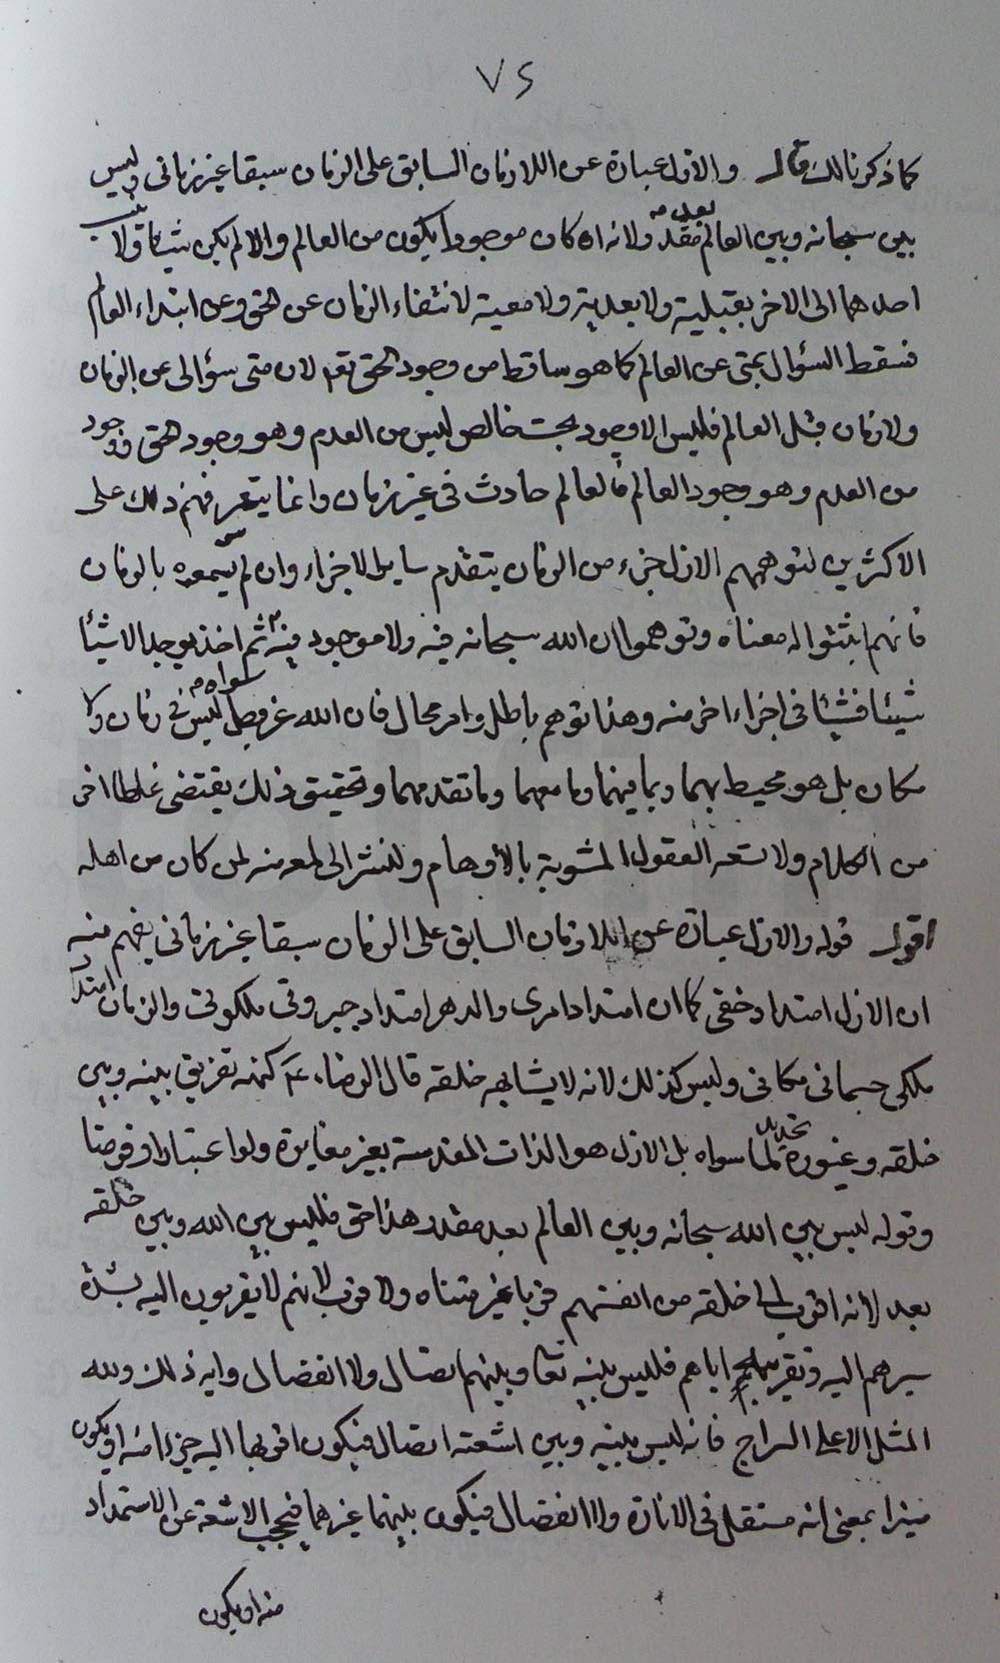 ٧٤
كما ذكرنا لك قال والازل عبارة عن اللازمان السابق على الزمان سبقا غير زماني وليس
بين سبحانه وبين العالم بعد مقدر لانه ان كان موجودا يكون من العالم والا لم يكن شيئا ولا ينسب
احدهما الى الاخر بقبلية ولا بعدية ولا معية لانتفاء الزمان عن الحق وعن ابتداء العالم
فسقط السؤال بمتى عن العالم كما هو ساقط من وجود الحق تعالى لان متى سؤال عن الزمان
ولا زمان قبل العالم فليس الا وجود بحت خالص ليس من العدم وهو وجود الحق ووجود
من العدم وهو وجود العالم فالعالم حادث في غير زمان وانما يتعسر فهم ذلك على
الاكثرين لتوهمهم الازل جزء من الزمان يتقدم ساير الاجزاء وان لم يسموه بالزمان
فانهم اثبتوا له معناه وتوهموا ان الله سبحانه فيه ولا موجود فيه سواه ثم اخذ يوجد الاشياء
شيئا فشيئا في اجزاء اخر منه وهذا توهم باطل وامر محال فان الله عز وجل ليس في زمان ولا
مكان بل هو محيط بهما وبما فيهما وما معهما وما تقدمهما وتحقيق ذلك يقتضي نمطا اخر
من الكلام ولا تسعه العقول المشوبة بالأوهام ولنشر الى لمعة منه لمن كان من اهله
اقول قوله والازل عبارة عن اللازمان السابق على الزمان سبقا غير زماني يفهم منه
ان الازل امتداد حقي كما ان امتدادا مرى والدهر امتداد جبروتي ملكوتي والزمان امتداد
ملكي جسماني مكاني وليس كذلك لانه لا يشابه خلقه قال الرضا ع كنهه تفريق بينه وبين
خلقه وغيوره تحديد لما سواه بل الازل هو الذات المقدسة بغير مغايرة ولو اعتبارا او فرضا
وقوله ليس بين الله سبحانه وبين العالم بعد مقدر هذا حق فليس بين الله وبين خلقه
بعد لانه اقرب الى خلقه من انفسهم قربا غير متناه ولا قرب لانهم لا يقربون اليه بشدة
سيرهم اليه وتقريبه اياهم فليس بينه تعالى وبينهم اتصال ولا انفصال واية ذلك ولله
المثل الاعلى السراج فانه ليس بينه وبين اشعته اتصال فيكون اقربها اليه جزءا منه او يكون
منيرا بمعنى انه مستقل في الانارة ولا انفصال فيكون بينهما غيرهما فيحجب الاشعة عن الاستمداد
منه او يكون